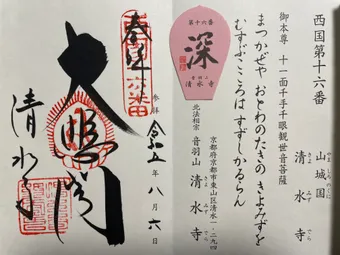 西国第十六番
山城国
やましろのくに
清水寺
きよみずでら
御本尊 十一面千手千眼観世音菩薩
まつかぜや おとわのたきの きよみずを
むすぶこころは すずしかるらん
第十六番
深
音羽山
清水寺
京都府京都市東山区清水一-二九四
北法相宗 音羽山 清水寺
きよみずでら
参拝 令和五年八月六日
奉拝
大悲閣
清水寺